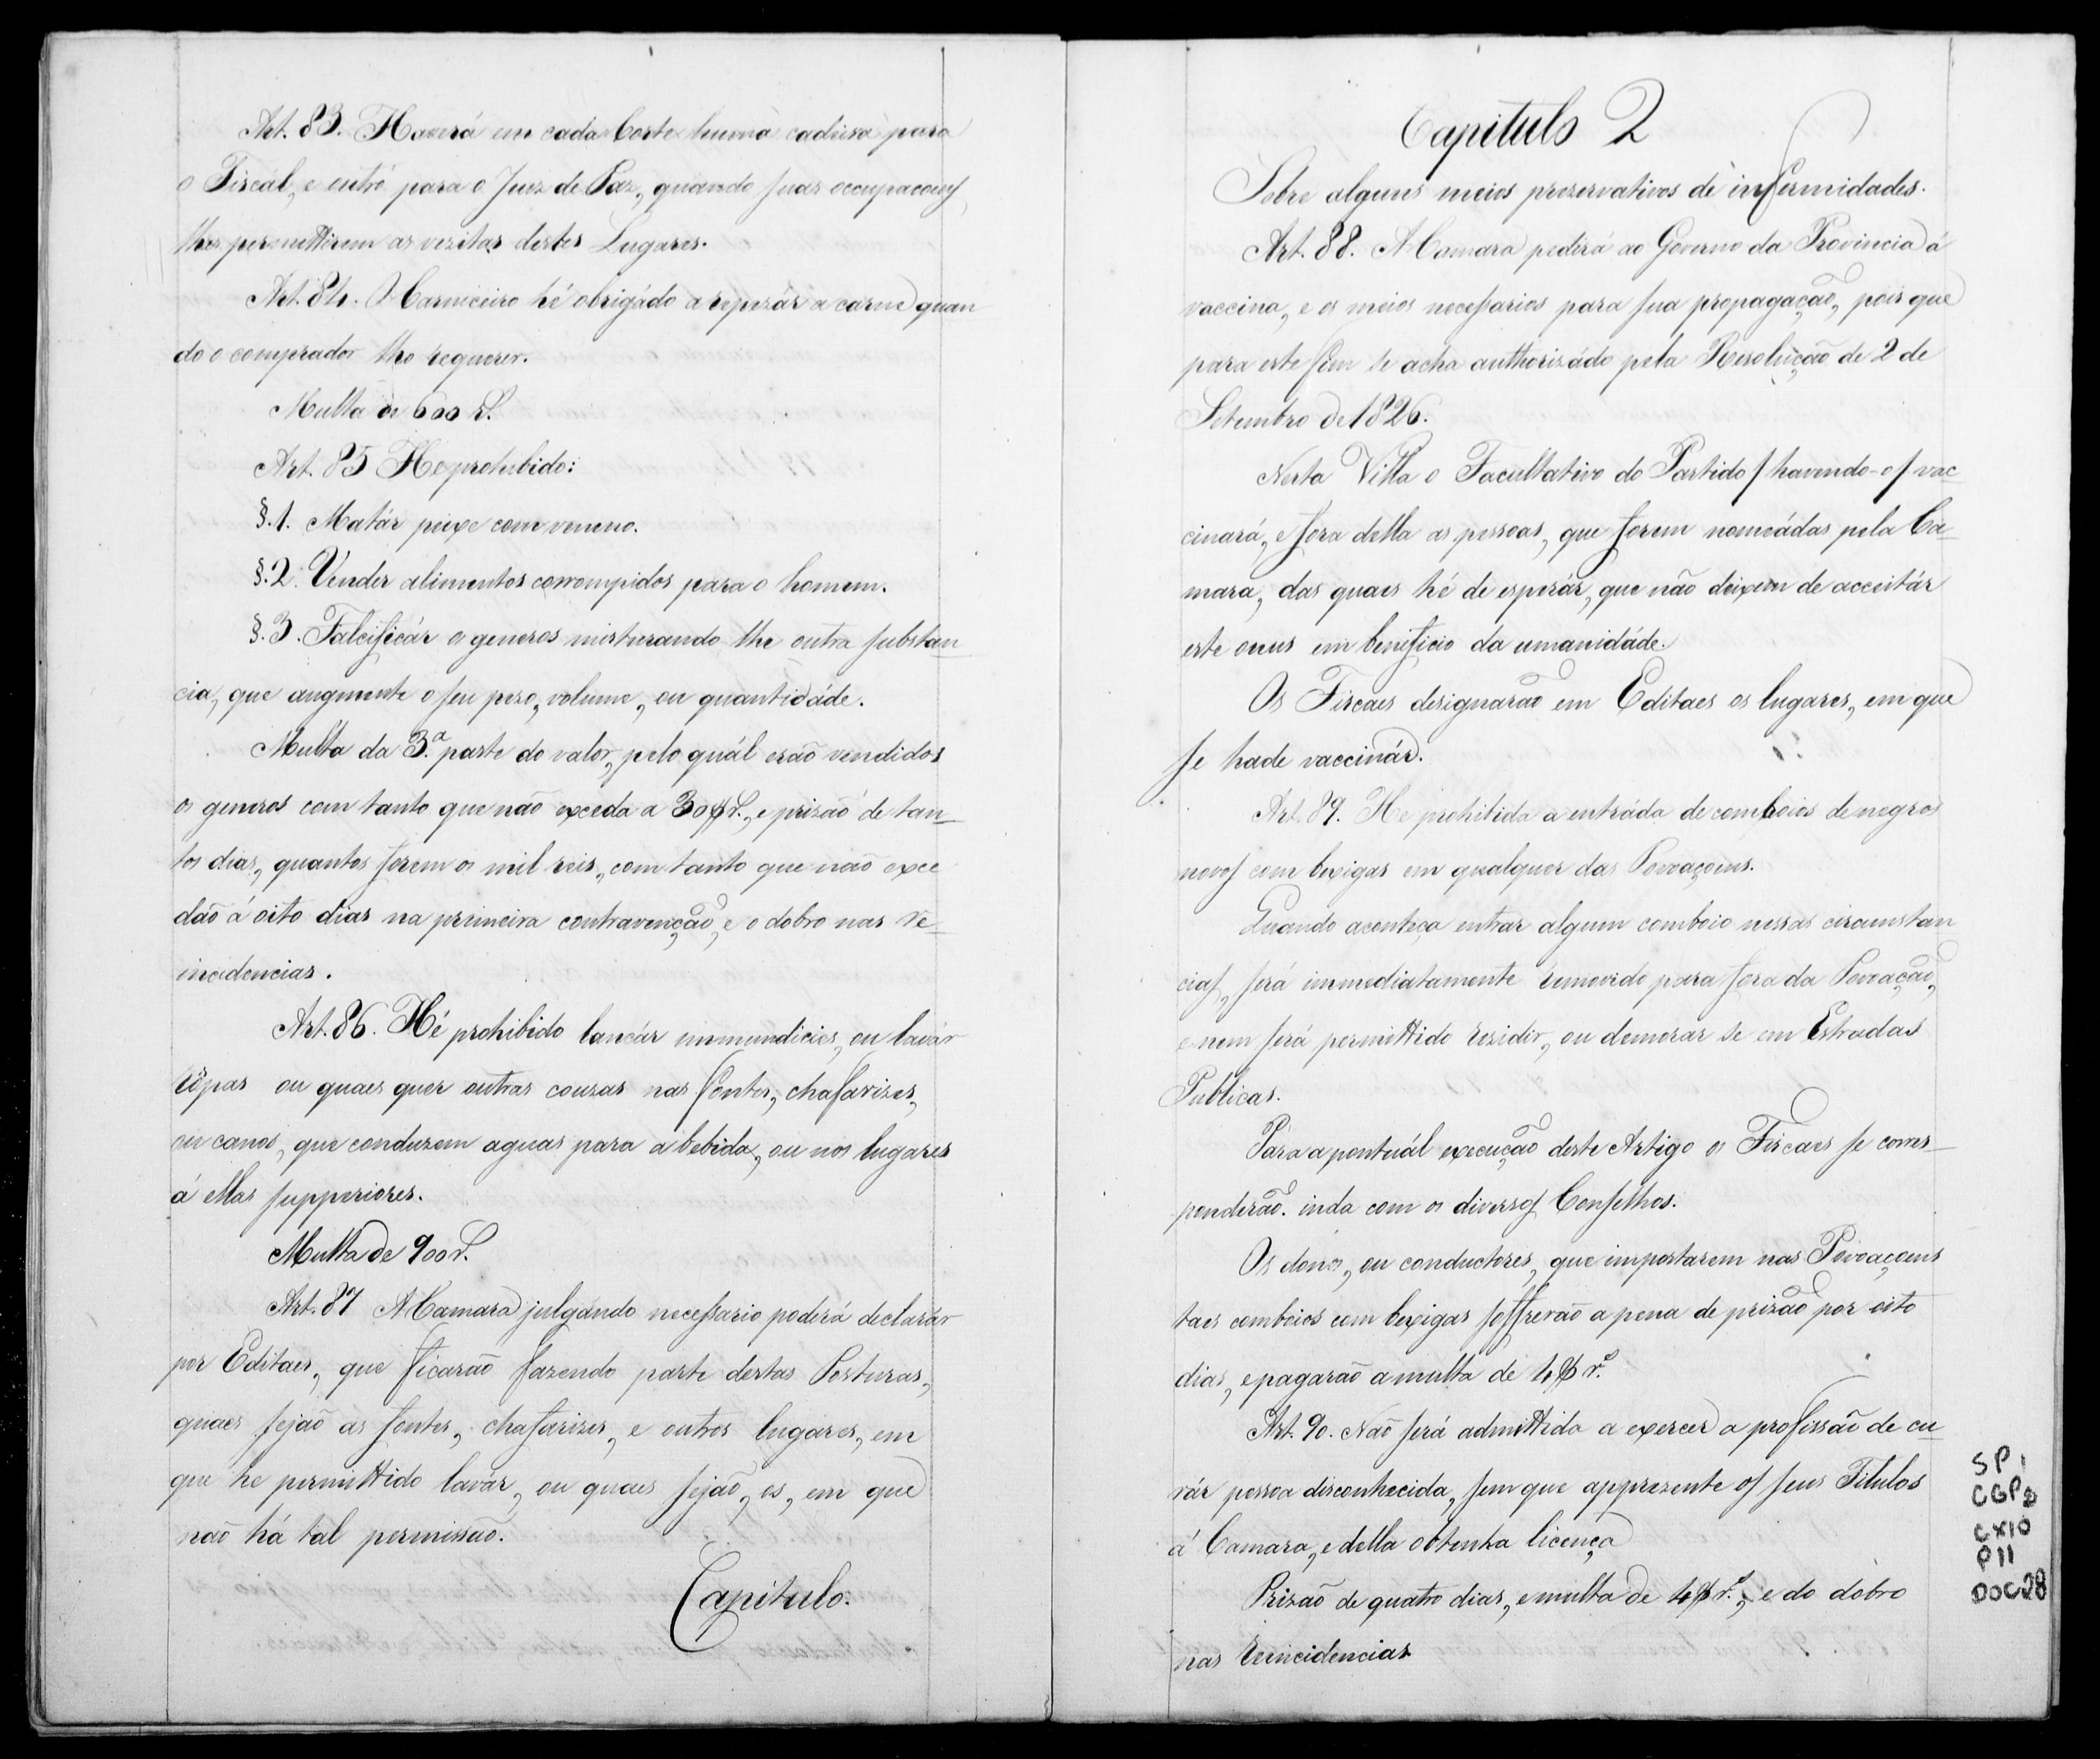 Art. 83. Haverá em cada Corte huma cadeira para
o Fiscal, e outro para o Juiz de Paz, quando suas occupaçoens
lhes permittirem as vezitas destes Lugares.
Art. 84. O Carniceiro hé obrigádo a repezár a carne quan
do o comprador lho requerer.
Multa de 600 rs.
Art. 85 He prohibido:
§.1. Matár peixe com veneno.
§.2. Vender alimentos corrompidos para o homem.
§.3. Falcificár os generos misturando-lhe outra substan
cia, que augmente o seu pezo, volume, ou quantidáde.
Multa da 3.ª parte do valor, pelo quál erão vendidos
os generos com tanto que não exceda a 30$ rs., e prizão de tan-
tos dias, quantos forem os mil reis, com tanto que não exce
dão á oito dias na primeira contravenção, e o dobro nas re-
incidencias.
Art. 86. Hé prohibido lançár immundicies, ou lavár
roupas ou quaes quer outras couzas nas fontes, chafarizes,
ou canos, que conduzem aguas para a bebida, ou nos lugares
á ellas supperiores.
Multa de 900 rs.
Art. 87 A Camara julgándo necessario poderá declarár
por Editaes, que ficarão fazendo parte destas Posturas,
quaes sejão as fontes, chafarizes, e outros lugares, em
que he permittido lavár, ou quaes sejão, os, em que
não há tal permissão.
Capitulo.
Capitulo 2
Sobre alguns meios prezervativos de infermidades.
Art. 88. A Camara pedirá ao Governo da Provincia á
vaccina, e os meios necessarios para sua propagação, pois que
para este fim se acha authorizádo pela Resolução de 2 de
Setembro de 1826.
Nesta Villa o Facultativo do Partido /havendo-o/ vac
cinará, e fora della as pessoas, que forem nomeádas pela Ca-
mara, das quaes hé de esperár, que não deixem de acceitár
este onus em beneficio da umanidáde.
Os Fiscaes designarão em Editaes os lugares, em que
se hade vaccinár.
Art. 89. He prohibida a entráda de comboios de negros
novos com bexigas em qualquer das Povoaçoens.
Quando aconteça entrar algum comboio nessas circunstan
cias, será immediatamente removido para fora da Povoação,
e nem será permittido rezidir, ou demorar se em Estradas
Publicas.
Para a pontuál execução deste Artigo os Fiscaes se corres-
ponderão. inda com os diversos Conselhos.
Os donos, ou conductores, que importarem nas Povoaçoens
taes comboios com bexigas soffrerão a pena de prizão por oito
dias, e pagarão a multa de 4$ rs.
Art. 90. Não será admittida a exercer a profissão de cu
rár pessoa disconhecida, sem que apprezente os seus Titulos
á Camara, e della obtenha licença
Prizão de quatro dias, e multa de 4$ rs., e do dobro
nas reincidencias
SP1
CGP2
CX10
P11
DOC28